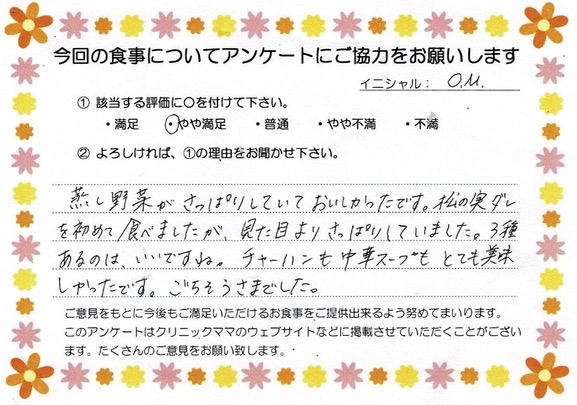 今回の食事についてアンケートにご協力をお願いします
イニシャル： O.M.
① 該当する評価に○を付けて下さい。
・満足 ・やや満足 ・普通 ・やや不満 ・不満
② よろしければ、①の理由をお聞かせ下さい。
蒸し野菜がさっぱりしていておいしかったです。松の実ダレ
を初めて食べましたが、見た目よりさっぱりしていました。3種
あるのは、いいですね。チャーハンも中華スープもとても美味
しかったです。ごちそうさまでした。
ご意見をもとに今後もご満足いただけるお食事をご提供出来るよう努めてまいります。
このアンケートはクリニックママのウェブサイトなどに掲載させていただくことがござい
ます。たくさんのご意見をお願い致します。